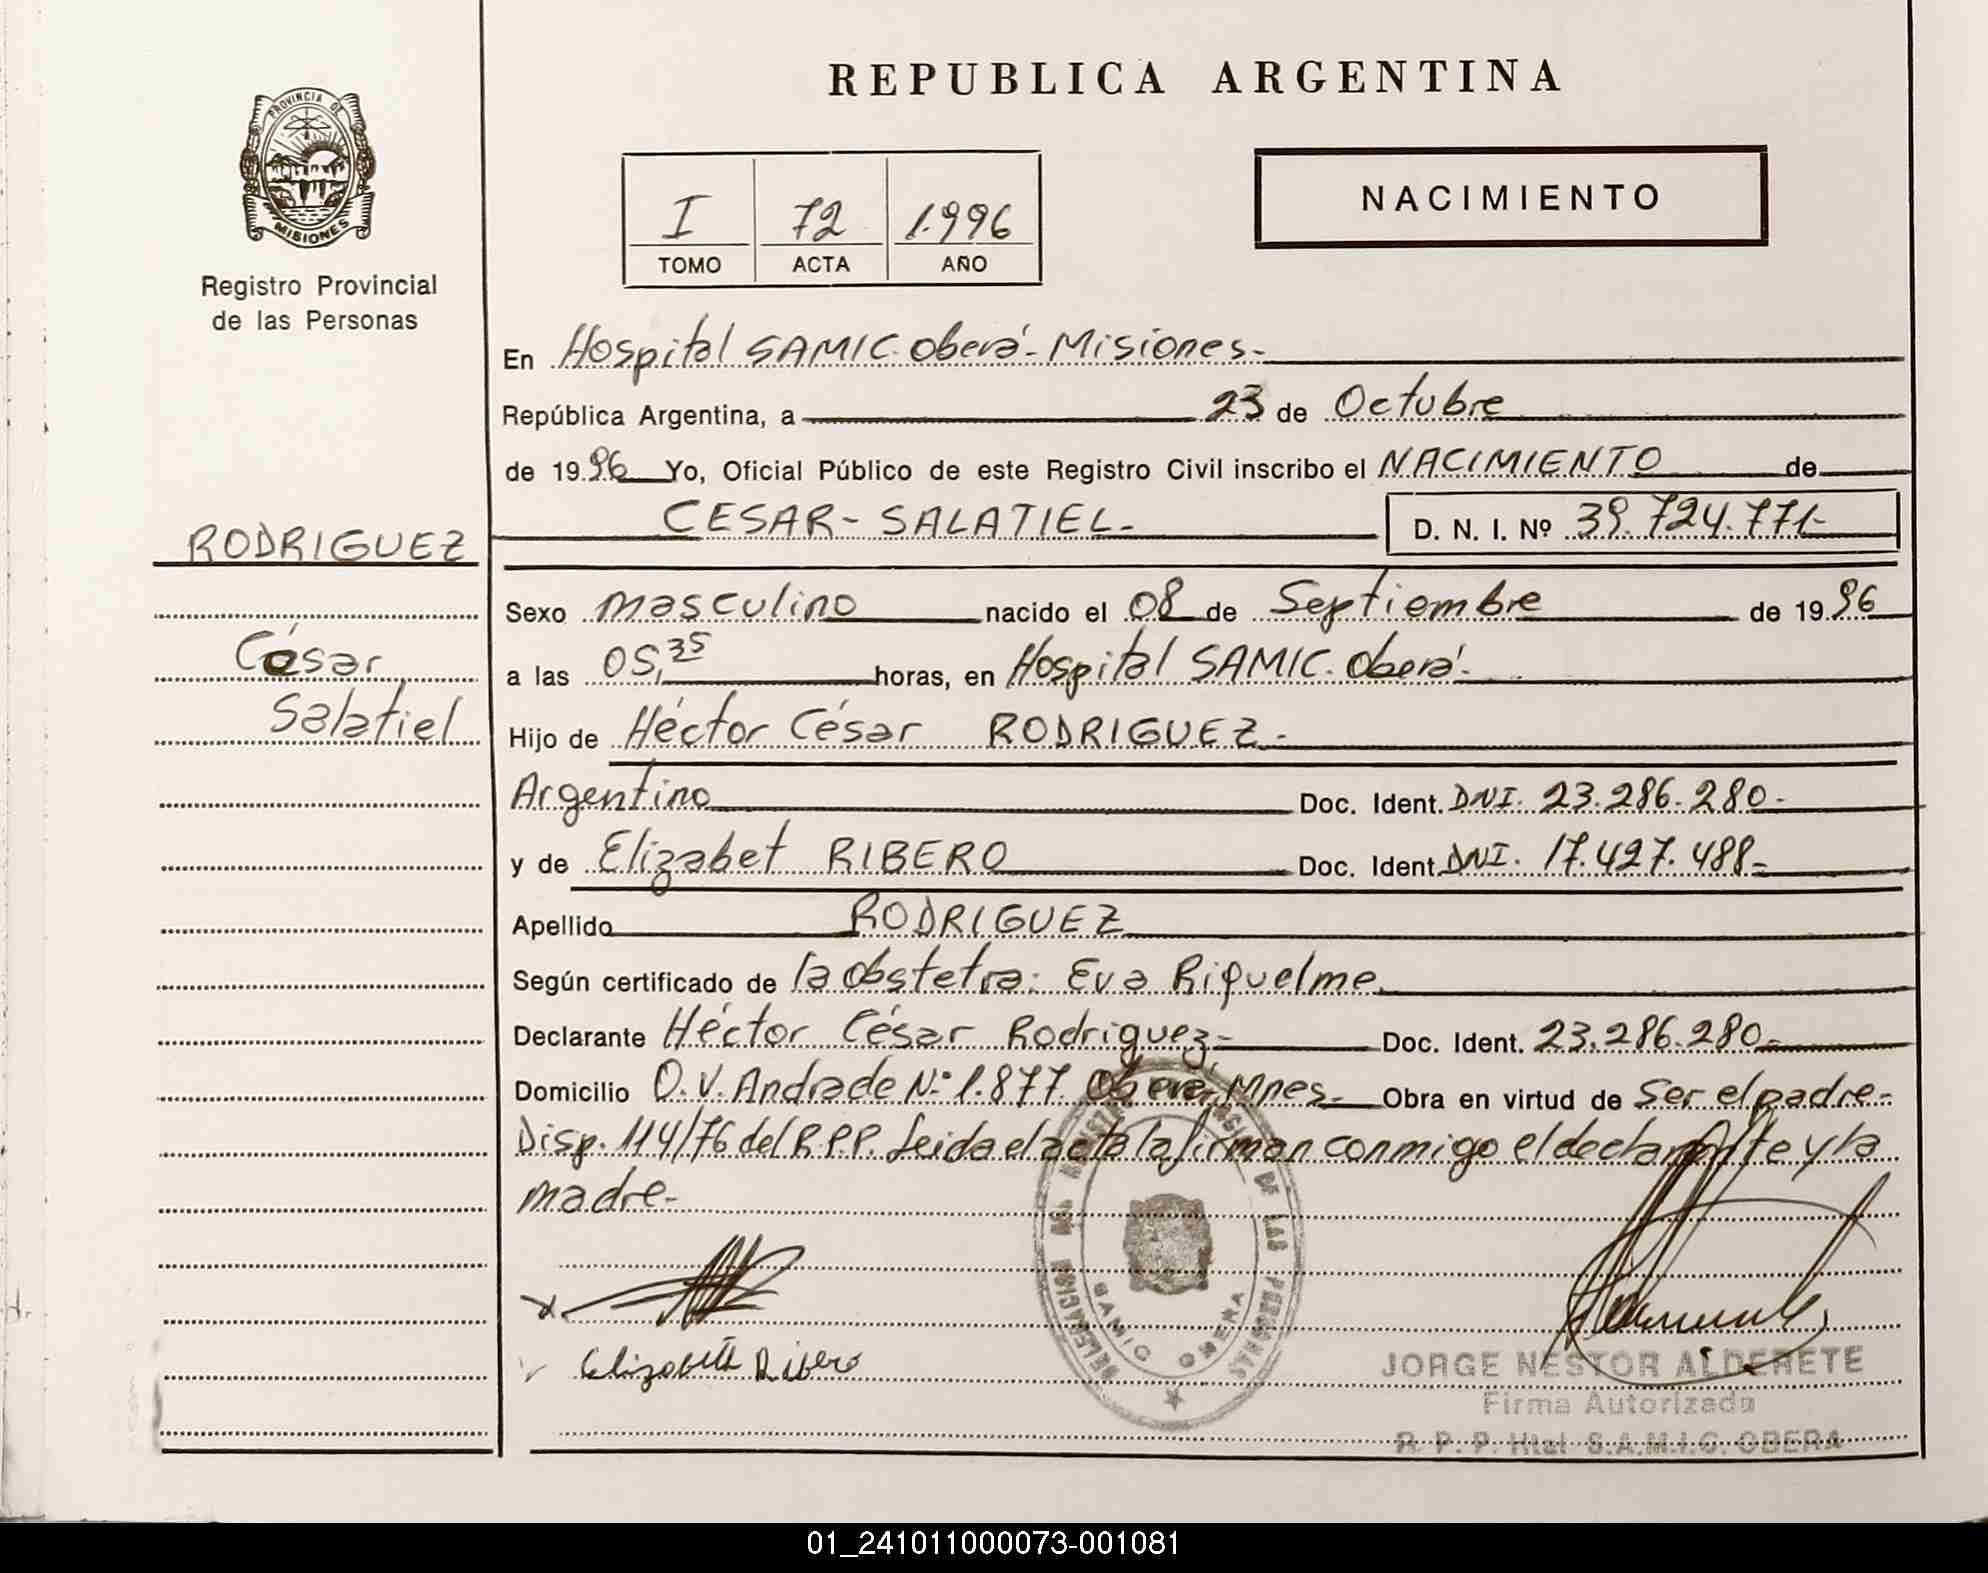 REPUBLICA ARGENTINA
PROVINCIA DE MISIONES
Registro Provincial
de las Personas
I 72 1.996
TOMO ACTA AÑO
NACIMIENTO
En Hospital SAMIC. Oberá - Misiones -
República Argentina, a 23 de Octubre
de 1996 Yo, Oficial Público de este Registro Civil inscribo el NACIMIENTO de
CESAR - SALATIEL - D. N. I. Nº 39.724.771-
RODRIGUEZ
César
Salatiel
Sexo masculino nacido el 08 de Septiembre de 1996
a las 05,35 horas, en Hospital SAMIC. Oberá -
Hijo de Héctor César RODRIGUEZ -
Argentino Doc. Ident. DNI. 23.286.280-
y de Elizabet RIBERO Doc. Ident. DNI. 17.427.488-
Apellido RODRIGUEZ
Según certificado de la obstetra: Eva Riquelme
Declarante Héctor César Rodriguez - Doc. Ident. 23.286.280-
Domicilio O. V. Andrade Nº 1.877. Oberá, Mnes - Obra en virtud de Ser el padre -
Disp. 114/76 del R.P.P. Leida el acta la firman conmigo el declarante y la
madre -
Elizabeth Ribero
DELEGACION DEL REGISTRO DE LAS PERSONAS
SAMIC OBERA
JORGE NESTOR ALDERETE
Firma Autorizada
R. P. P. Htal S.A.M.I.C. OBERA
01_241011000073-001081